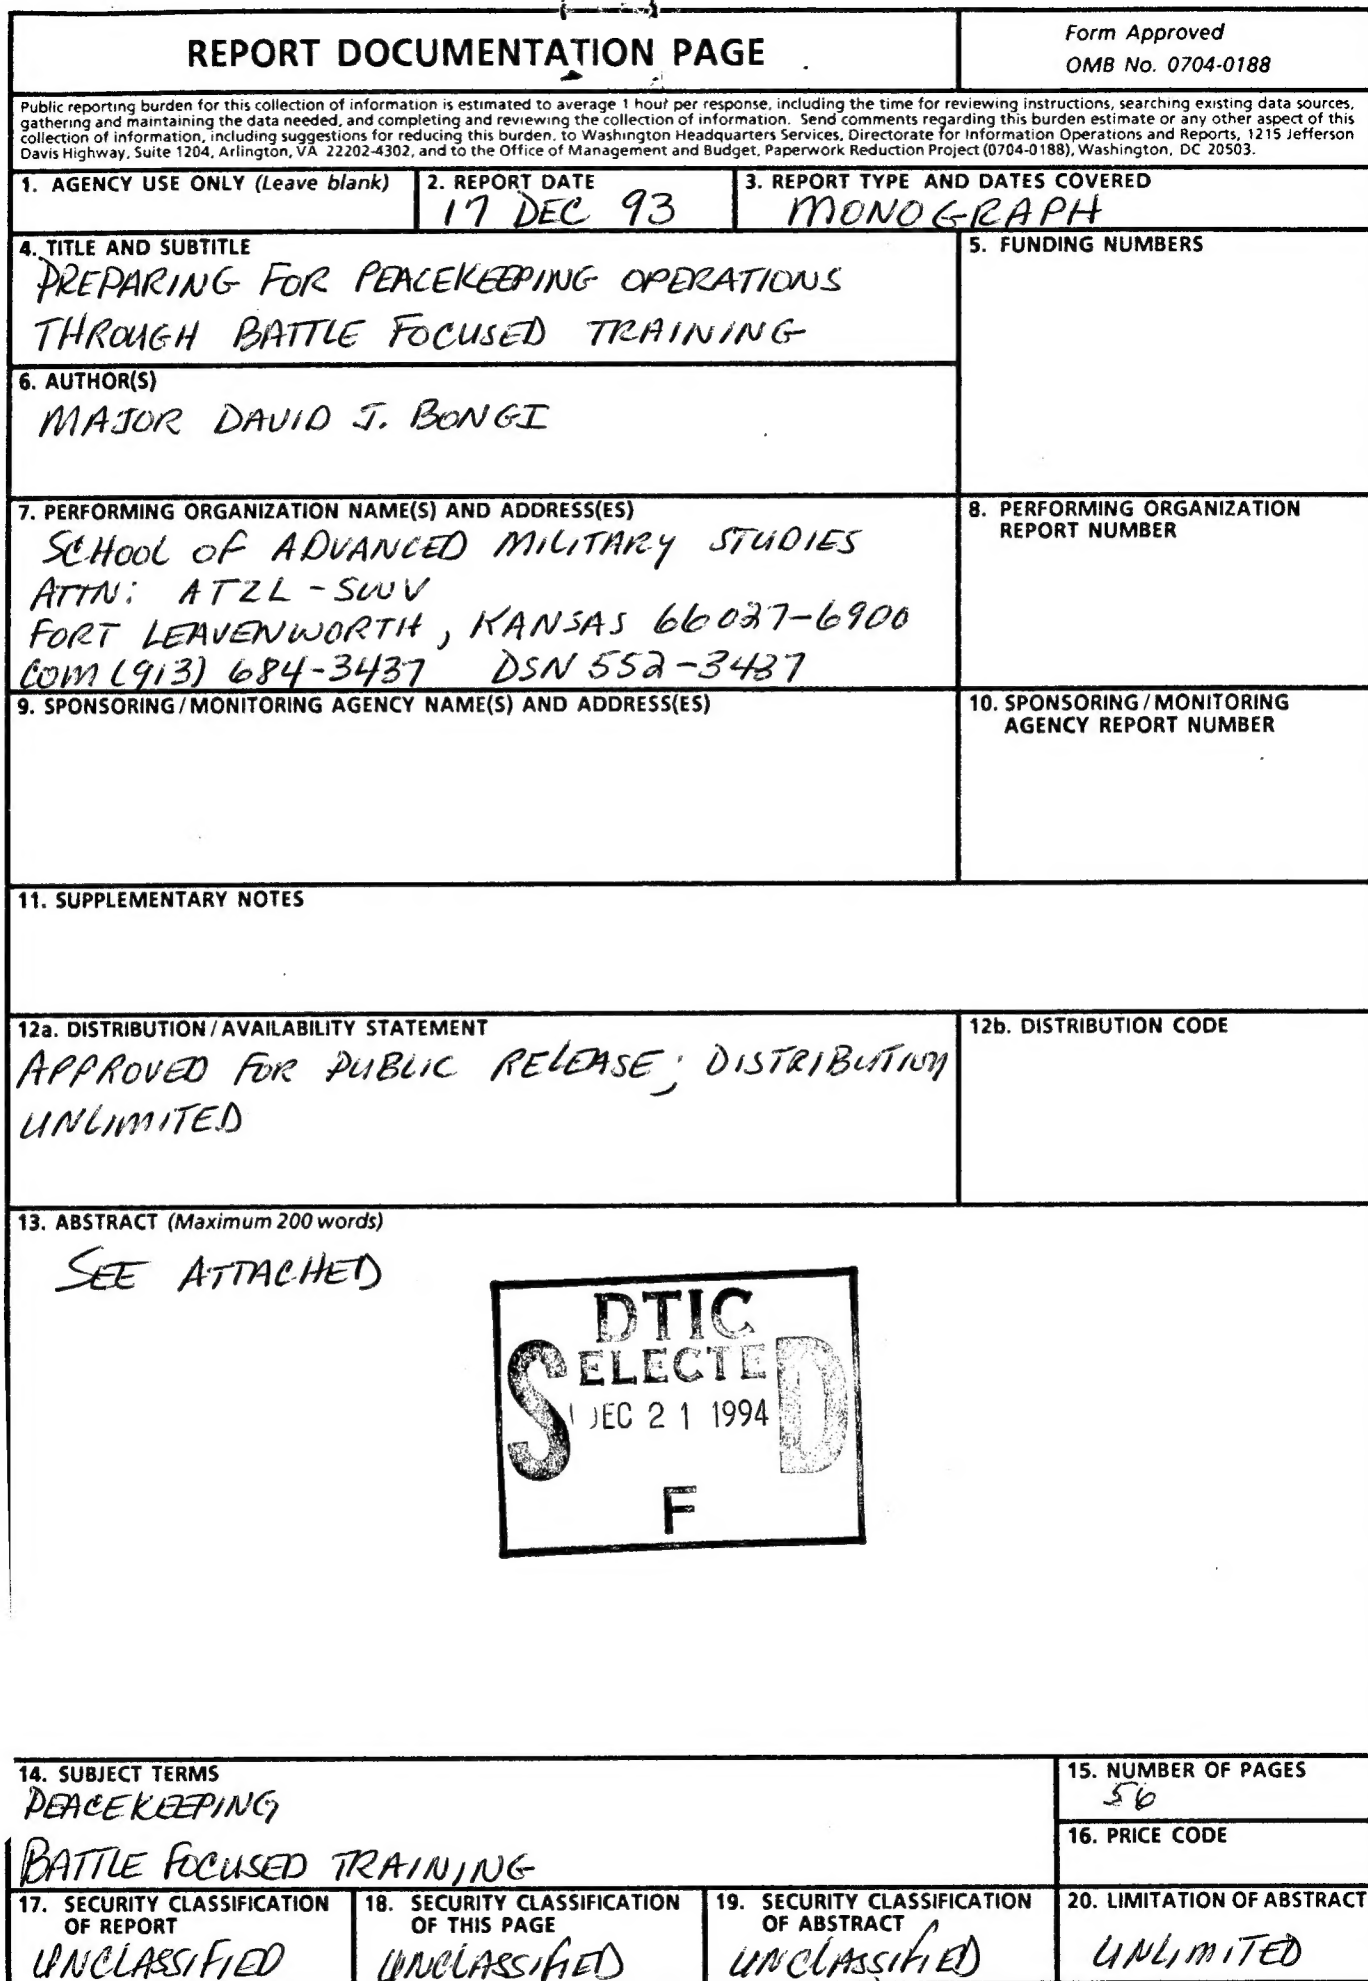 REPORT DOCUMENTATION PAGE
Form Approved
OMB No. 0704-0188
Public reporting burden for this collection of information is estimated to average 1 hour per response, including the time for reviewing instructions, searching existing data sources,
gathering and maintaining the data needed, and completing and reviewing the collection of information. Send comments regarding this burden estimate or any other aspect of this
collection of information, including suggestions for reducing this burden, to Washington Headquarters Services, Directorate for Information Operations and Reports, 1215 Jefferson
Davis Highway, Suite 1204, Arlington, VA 22202-4302, and to the Office of Management and Budget, Paperwork Reduction Project (0704-0188), Washington, DC 20503.
1. AGENCY USE ONLY (Leave blank)
2. REPORT DATE
17 DEC 93
3. REPORT TYPE AND DATES COVERED
MONOGRAPH
4. TITLE AND SUBTITLE
PREPARING FOR PEACEKEEPING OPERATIONS
THROUGH BATTLE FOCUSED TRAINING
5. FUNDING NUMBERS
6. AUTHOR(S)
MAJOR DAVID J. BONGI
7. PERFORMING ORGANIZATION NAME(S) AND ADDRESS(ES)
SCHOOL OF ADVANCED MILITARY STUDIES
ATTN: ATZL-SWV
FORT LEAVENWORTH, KANSAS 66027-6900
COM (913) 684-3437 DSN 552-3437
8. PERFORMING ORGANIZATION
REPORT NUMBER
9. SPONSORING/MONITORING AGENCY NAME(S) AND ADDRESS(ES)
10. SPONSORING/MONITORING
AGENCY REPORT NUMBER
11. SUPPLEMENTARY NOTES
12a. DISTRIBUTION/AVAILABILITY STATEMENT
APPROVED FOR PUBLIC RELEASE; DISTRIBUTION
UNLIMITED
12b. DISTRIBUTION CODE
13. ABSTRACT (Maximum 200 words)
SEE ATTACHED
DTIC
SELECTED
DEC 21 1994
F
14. SUBJECT TERMS
PEACEKEEPING
BATTLE FOCUSED TRAINING
15. NUMBER OF PAGES
56
16. PRICE CODE
17. SECURITY CLASSIFICATION
OF REPORT
UNCLASSIFIED
18. SECURITY CLASSIFICATION
OF THIS PAGE
UNCLASSIFIED
19. SECURITY CLASSIFICATION
OF ABSTRACT
UNCLASSIFIED
20. LIMITATION OF ABSTRACT
UNLIMITED